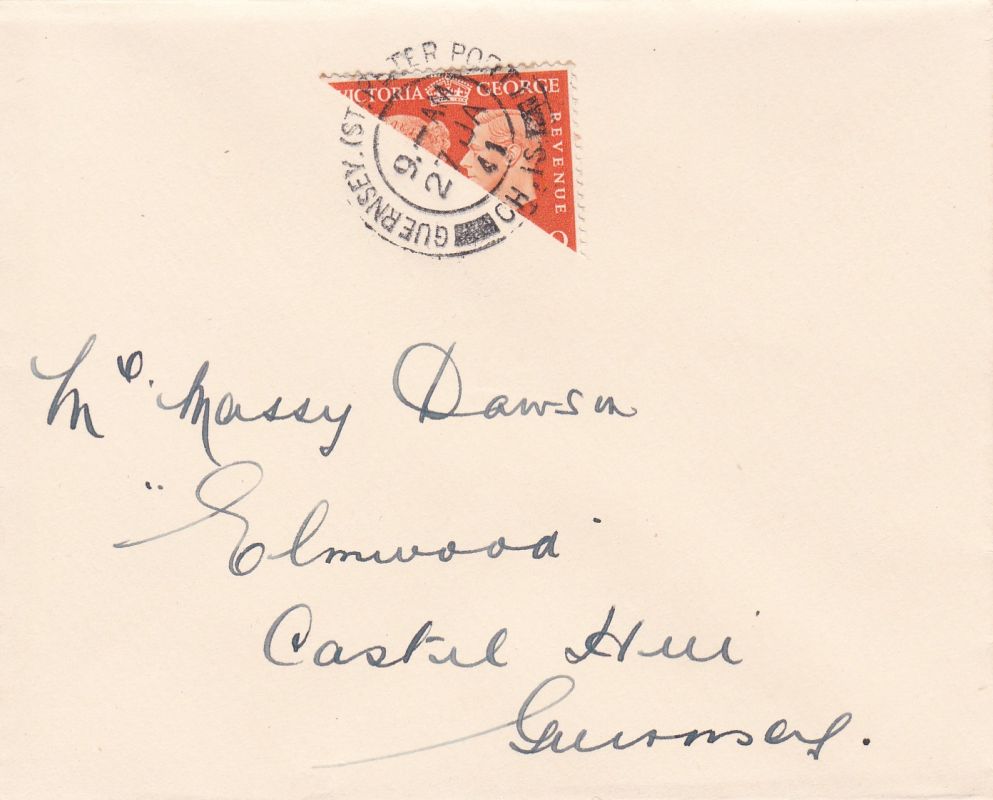 GUERNSEY. (ST. PETER PORT) CH. IS.
9 - AM
27 JA
41
VICTORIA GEORGE
REVENUE
2
Mr. Massy Dawson
"Elmwood
Castel Hill
Guernsey.